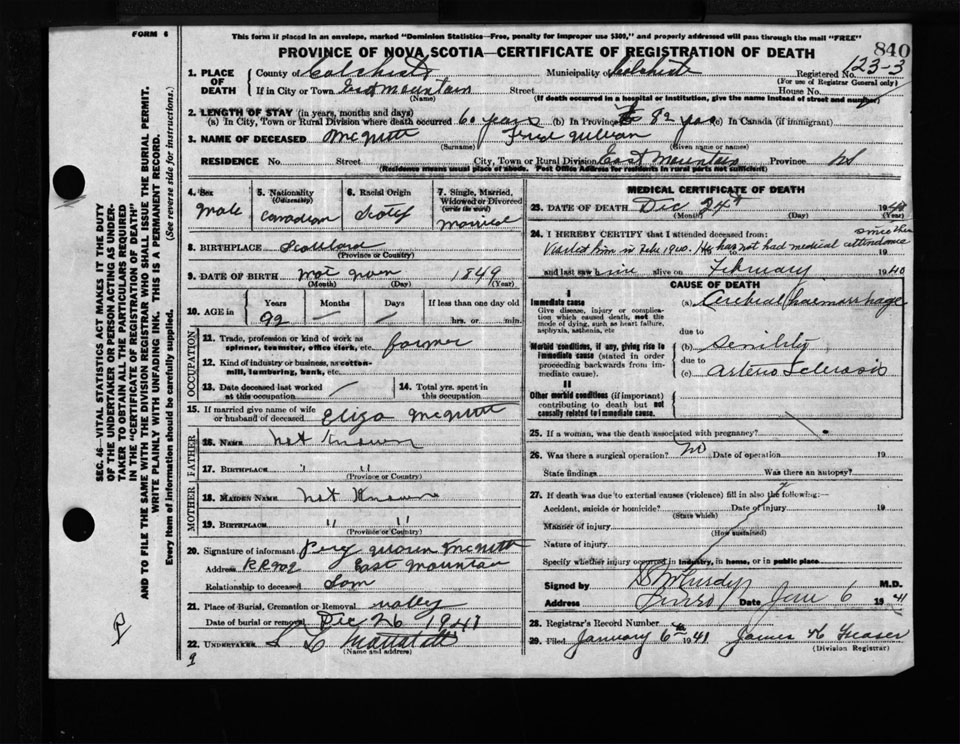 FORM 6
This form if placed in an envelope, marked "Dominion Statistics—Free, penalty for improper use $300," and properly addressed will pass through the mail "FREE"
PROVINCE OF NOVA SCOTIA—CERTIFICATE OF REGISTRATION OF DEATH
840
1. PLACE OF DEATH
County of Colchester Municipality of Colchester Registered No. 123-3
(For use of Registrar General only)
If in City or Town East Mountain Street House No.
(Name) (If death occurred in a hospital or institution, give the name instead of street and number)
2. LENGTH OF STAY (in years, months and days)
(a) In City, Town or Rural Division where death occurred 60 years (b) In Province 82 yrs (c) In Canada (if immigrant)
3. NAME OF DECEASED McNutt
(Surname) (Given name or names)
RESIDENCE No. Street City, Town or Rural Division East Mountain Province NS
(Residence means usual place of abode. Post Office Address for residents in rural parts not sufficient)
4. Sex Male
5. Nationality (Citizenship) Canadian
6. Racial Origin Scotch
7. Single, Married, Widowed or Divorced (write the word) Married
8. BIRTHPLACE Scotland
(Province or Country)
9. DATE OF BIRTH Not Known 1849
(Month) (Day) (Year)
10. AGE in Years 92 Months / Days / If less than one day old hrs. or min.
OCCUPATION
11. Trade, profession or kind of work as spinner, teamster, office clerk, etc. farmer
12. Kind of industry or business, as cotton-mill, lumbering, bank, etc.
13. Date deceased last worked at this occupation /
14. Total yrs. spent in this occupation
15. If married give name of wife or husband of deceased Eliza McNutt
FATHER
16. NAME Not Known
17. BIRTHPLACE " "
(Province or Country)
MOTHER
18. MAIDEN NAME Not Known
19. BIRTHPLACE " "
(Province or Country)
20. Signature of informant McNutt
Address RR no 2 East Mountain
Relationship to deceased Son
21. Place of Burial, Cremation or Removal Valley
Date of burial or removal Dec 26 1941
22. UNDERTAKER
(Name and address)
MEDICAL CERTIFICATE OF DEATH
23. DATE OF DEATH Dec 24th 19
(Month) (Day) (Year)
24. I HEREBY CERTIFY that I attended deceased from: since then
Visited him in Feb. 1940. He has not had medical attendance
to 19
and last saw him alive on February 1940
CAUSE OF DEATH
I
Immediate cause
Give disease, injury or complication which caused death, not the mode of dying, such as heart failure, asphyxia, asthenia, etc
(a) Cerebral haemorrhage
due to
Morbid conditions, if any, giving rise to immediate cause (stated in order proceeding backwards from immediate cause).
(b) Senility
due to
(c) Arterio Sclerosis
II
Other morbid conditions (if important) contributing to death but not causally related to immediate cause.
25. If a woman, was the death associated with pregnancy?
26. Was there a surgical operation? No Date of operation 19
State findings Was there an autopsy?
27. If death was due to external causes (violence) fill in also the following:—
Accident, suicide or homicide? Date of injury 19
(State which)
Manner of injury
(How sustained)
Nature of injury
Specify whether injury occurred in industry, in home, or in public place
Signed by M.D.
Address Truro Date 6 1941
28. Registrar's Record Number
29. Filed January 6th 1941 James K Fraser
(Division Registrar)
SEC. 46—VITAL STATISTICS ACT MAKES IT THE DUTY OF THE UNDERTAKER OR PERSON ACTING AS UNDERTAKER TO OBTAIN ALL THE PARTICULARS REQUIRED IN THE "CERTIFICATE OF REGISTRATION OF DEATH" AND TO FILE THE SAME WITH THE DIVISION REGISTRAR WHO SHALL ISSUE THE BURIAL PERMIT.
WRITE PLAINLY WITH UNFADING INK. THIS IS A PERMANENT RECORD.
Every item of information should be carefully supplied. (See reverse side for instructions.)